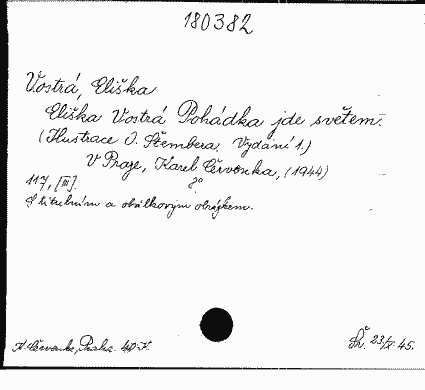 180382
Vostrá, Eliška
Eliška Vostrá Pohádka jde světem.
(Ilustrace O. Štembera. Vydání 1.)
V Praze, Karel Červenka, (1944)
117, [III]. 8°
S titulním a obálkovým obrázkem.
K. Červenka, Praha. 40 K. Př. 23/IX 45.